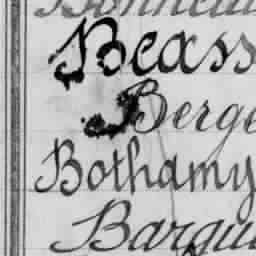 Bonneau
Beass
Berge
Bothamy
Barqui